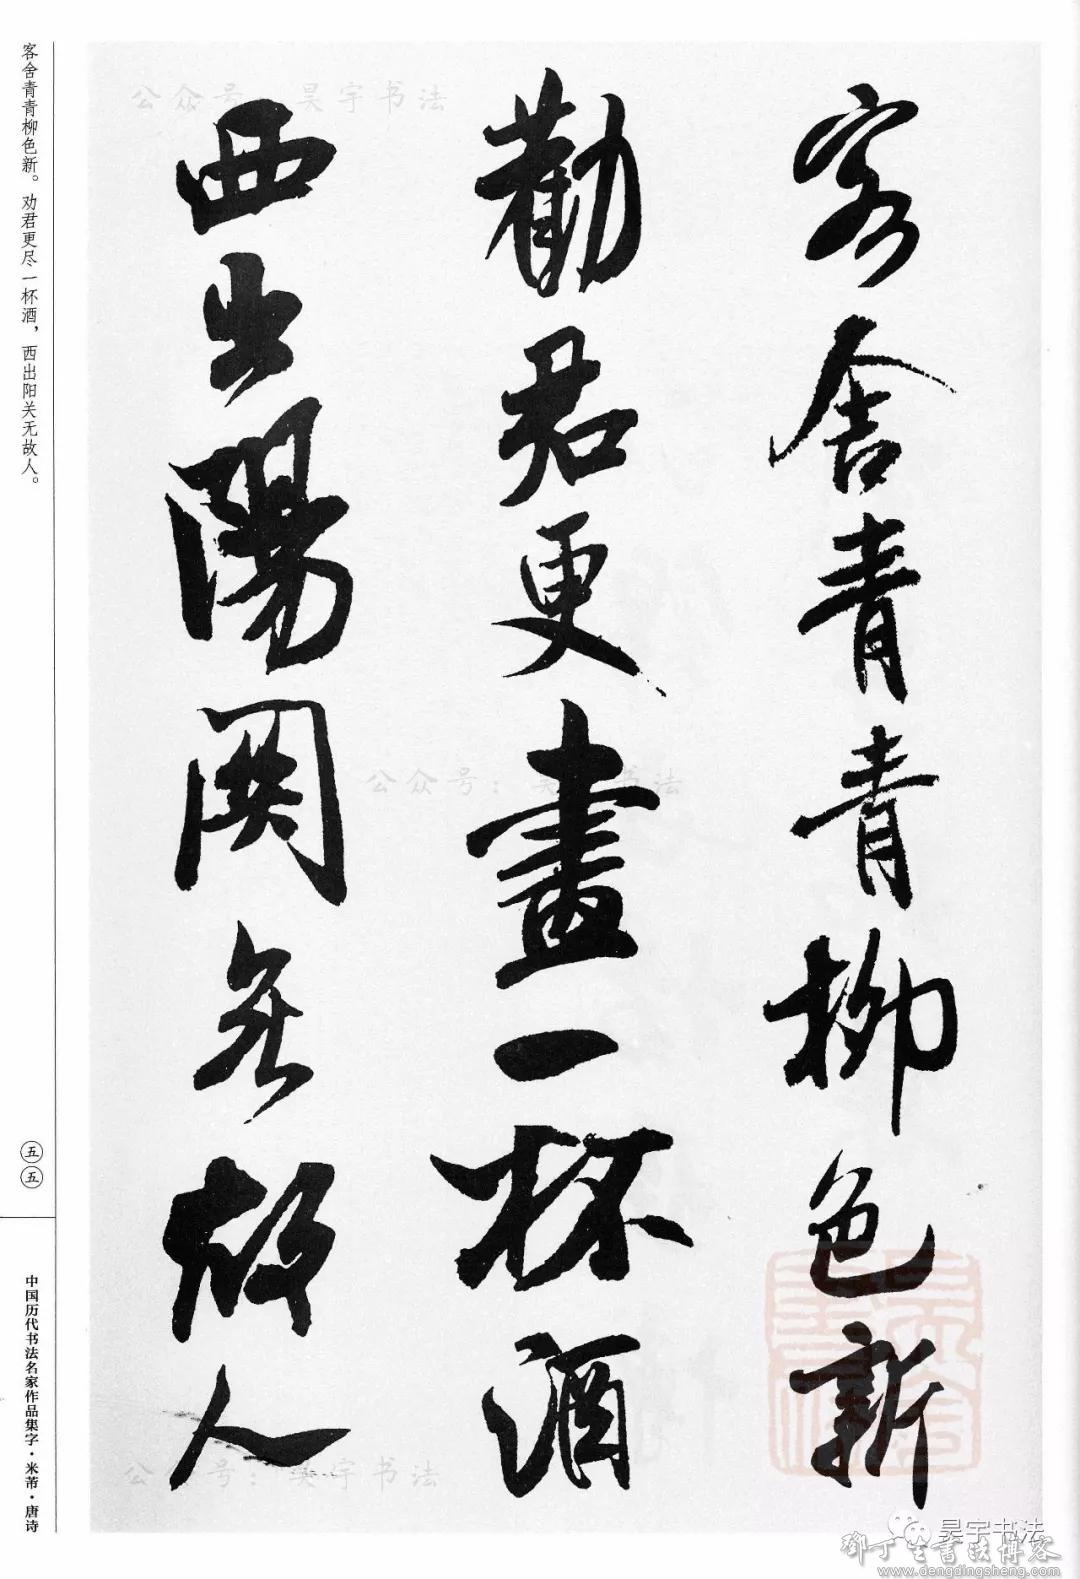 客舍青青柳色新
勸君更盡一杯酒
西出陽關無故人
客舍青青柳色新。劝君更尽一杯酒，西出阳关无故人。
五五
中国历代书法名家作品集字·米芾·唐诗
公众号：昊宇书法
公众号：昊宇书法
公众号：昊宇书法
昊宇书法
鄧丁生書法博客
www.dengdingsheng.com